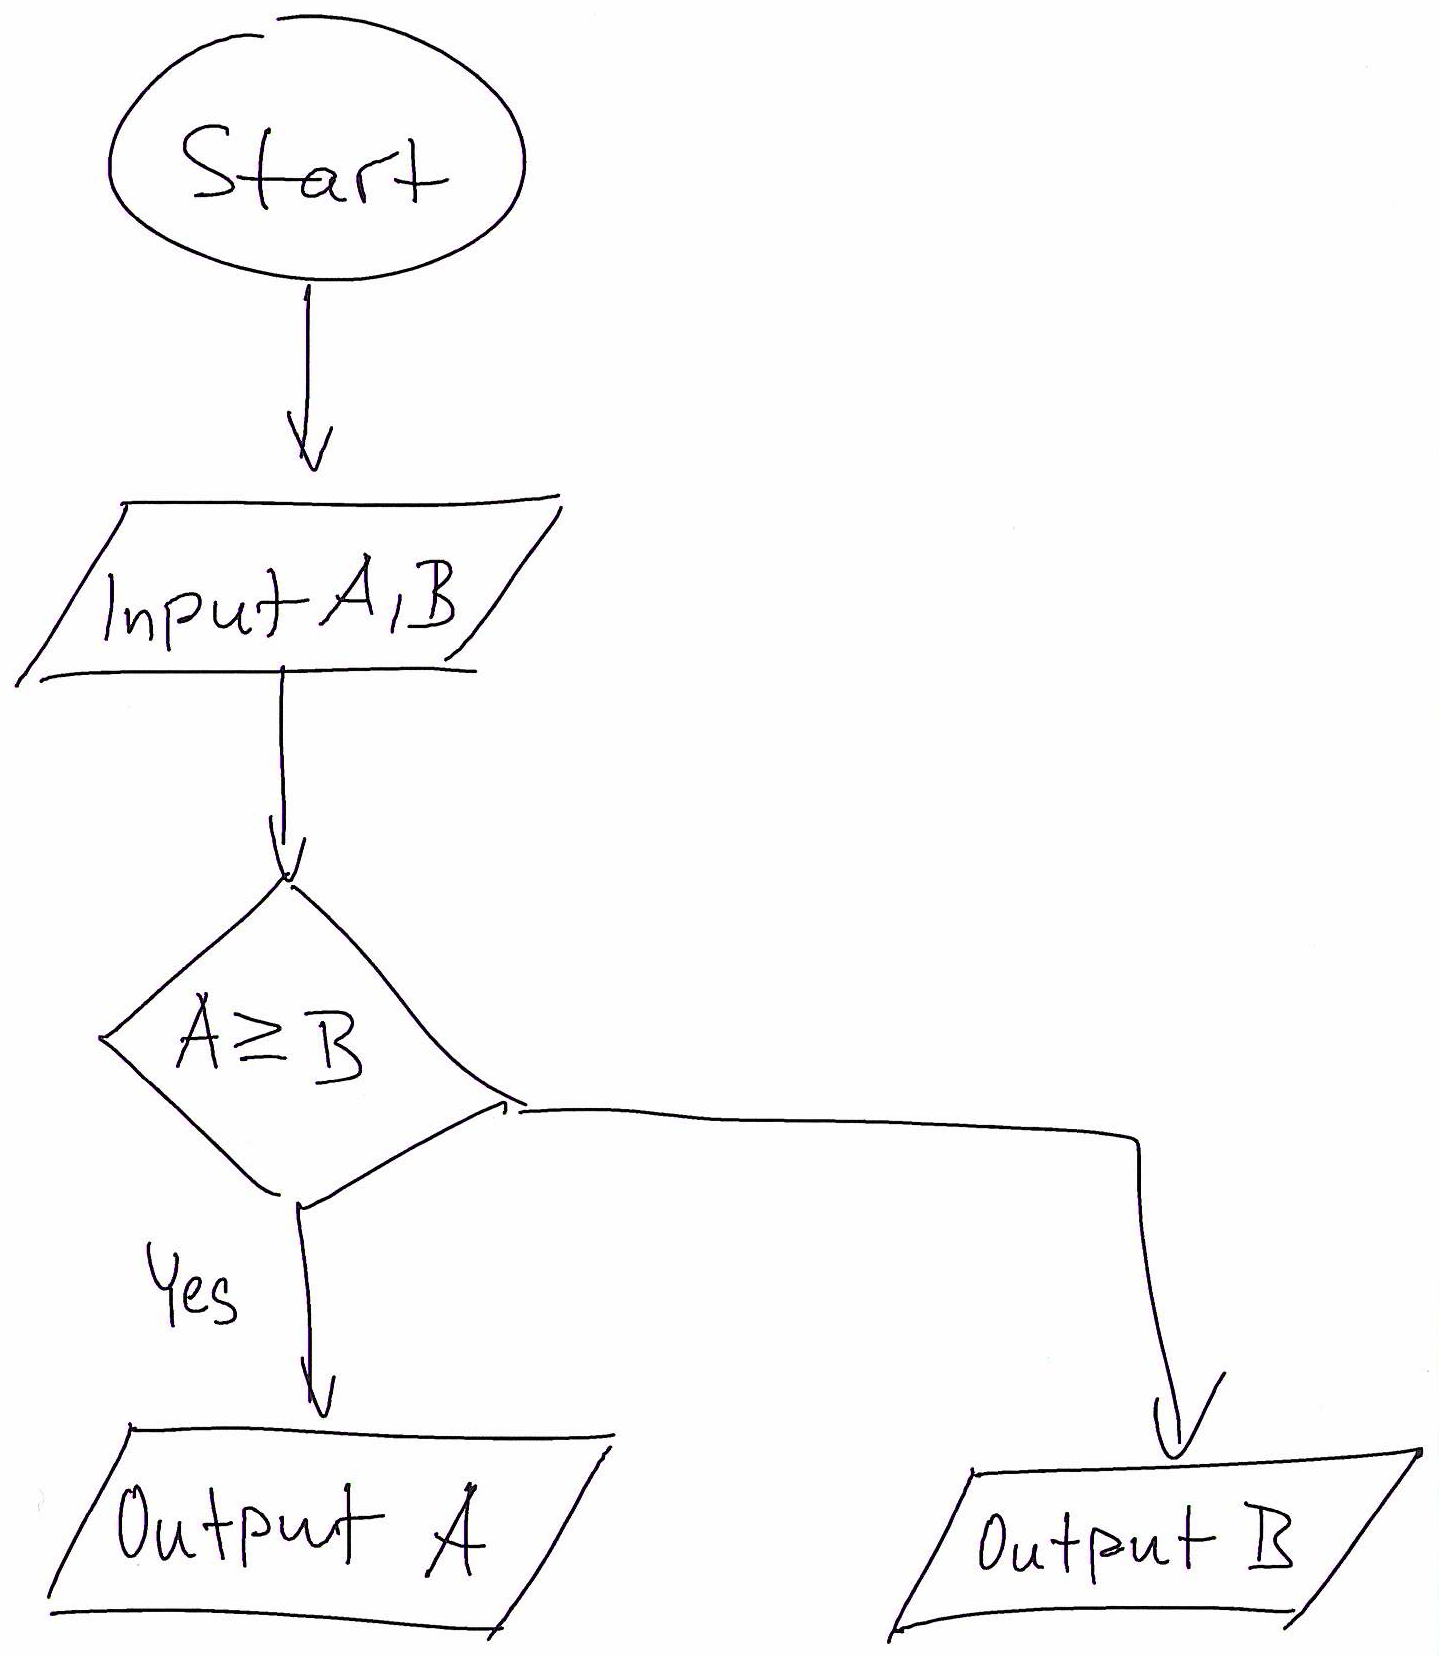 Start
Input A,B
A ≥ B
Yes
Output A
Output B